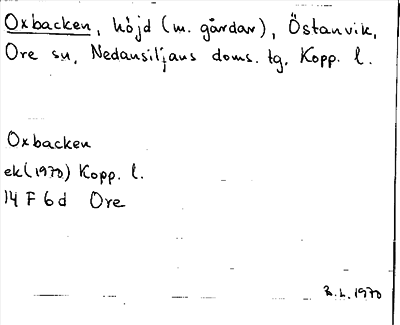 Oxbacken, höjd (m. gårdar), Östanvik,
Ore sn, Nedansiljans doms. tg, Kopp. l.
Oxbacken
ek (1970) Kopp. l.
14 F 6 d Ore
1970